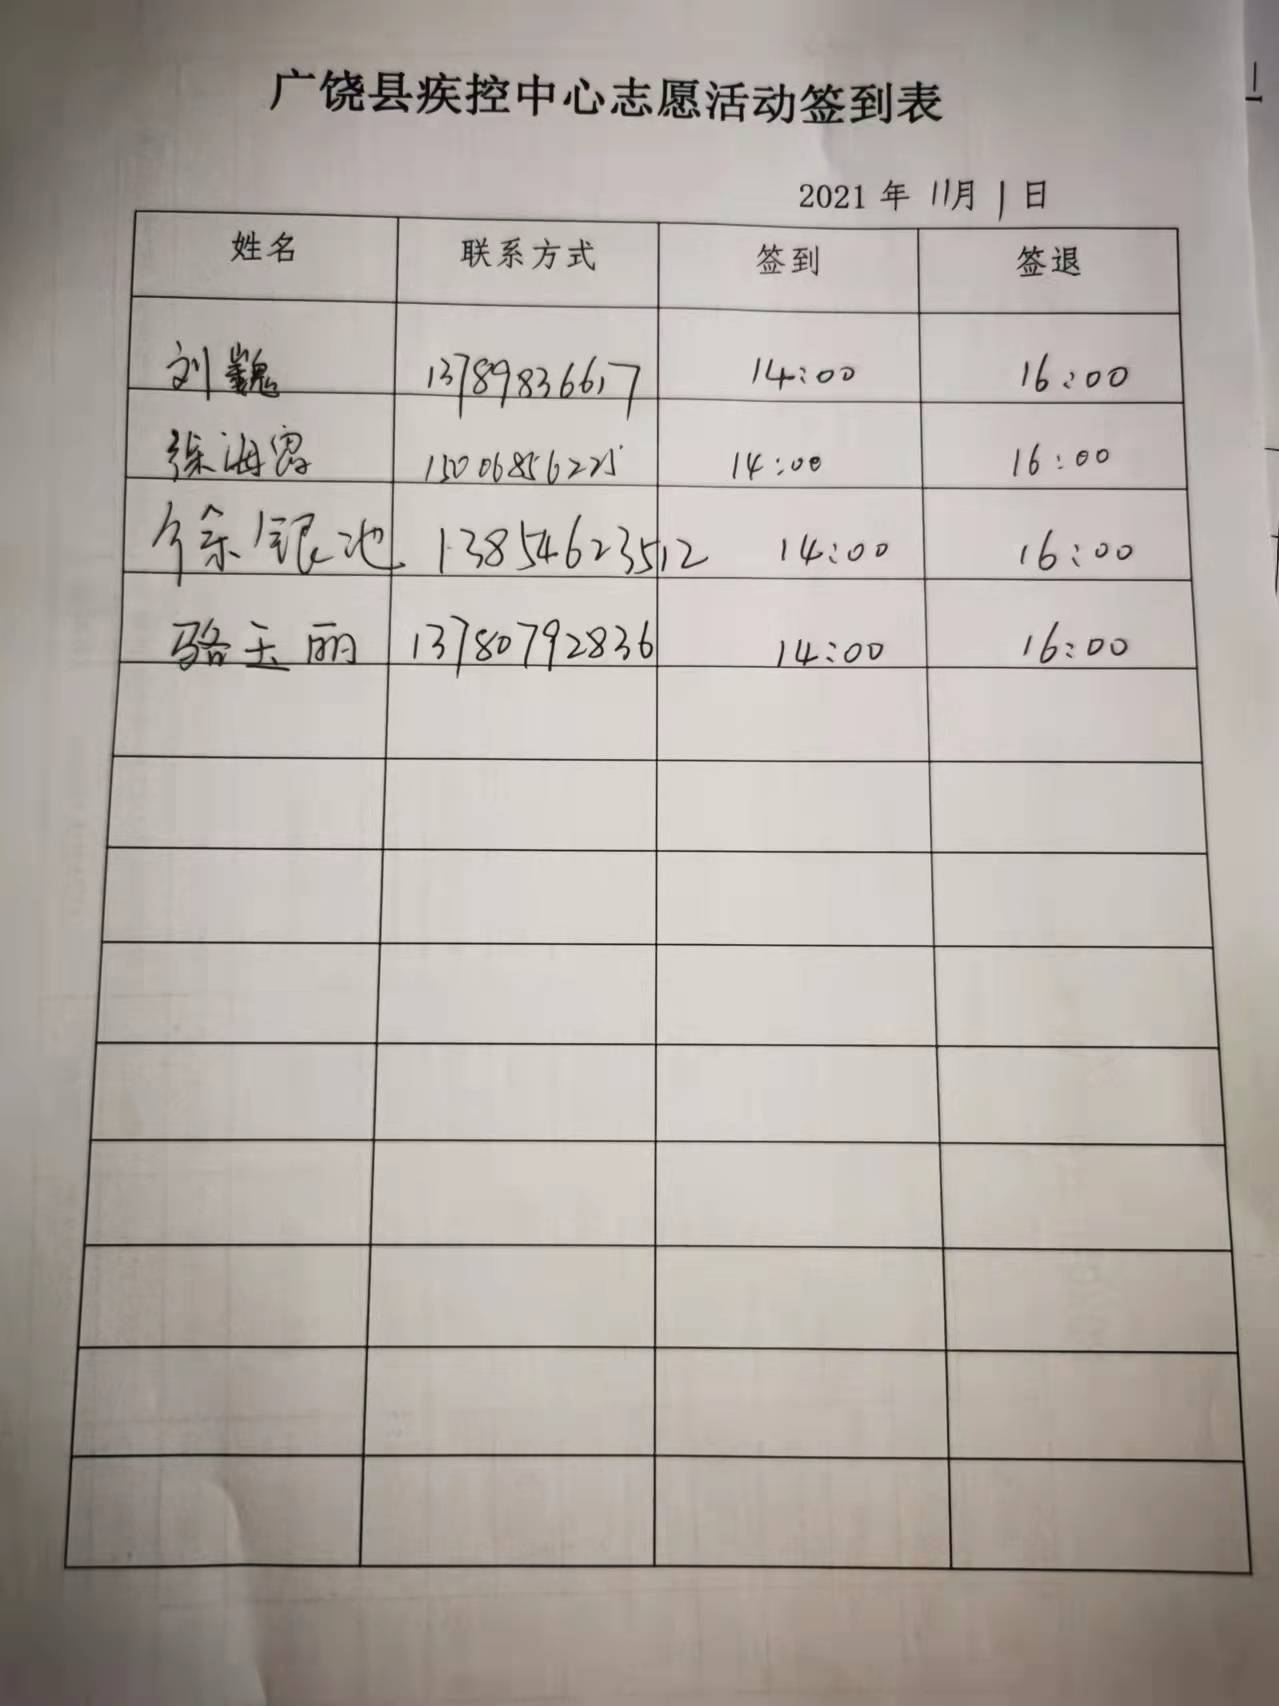 广饶县疾控中心志愿活动签到表
2021 年 11月 1 日
姓名 联系方式 签到 签退
刘巍 13789836617 14:00 16:00
徐海霞 15006856225 14:00 16:00
徐银池 13854623512 14:00 16:00
骆玉丽 13780792836 14:00 16:00